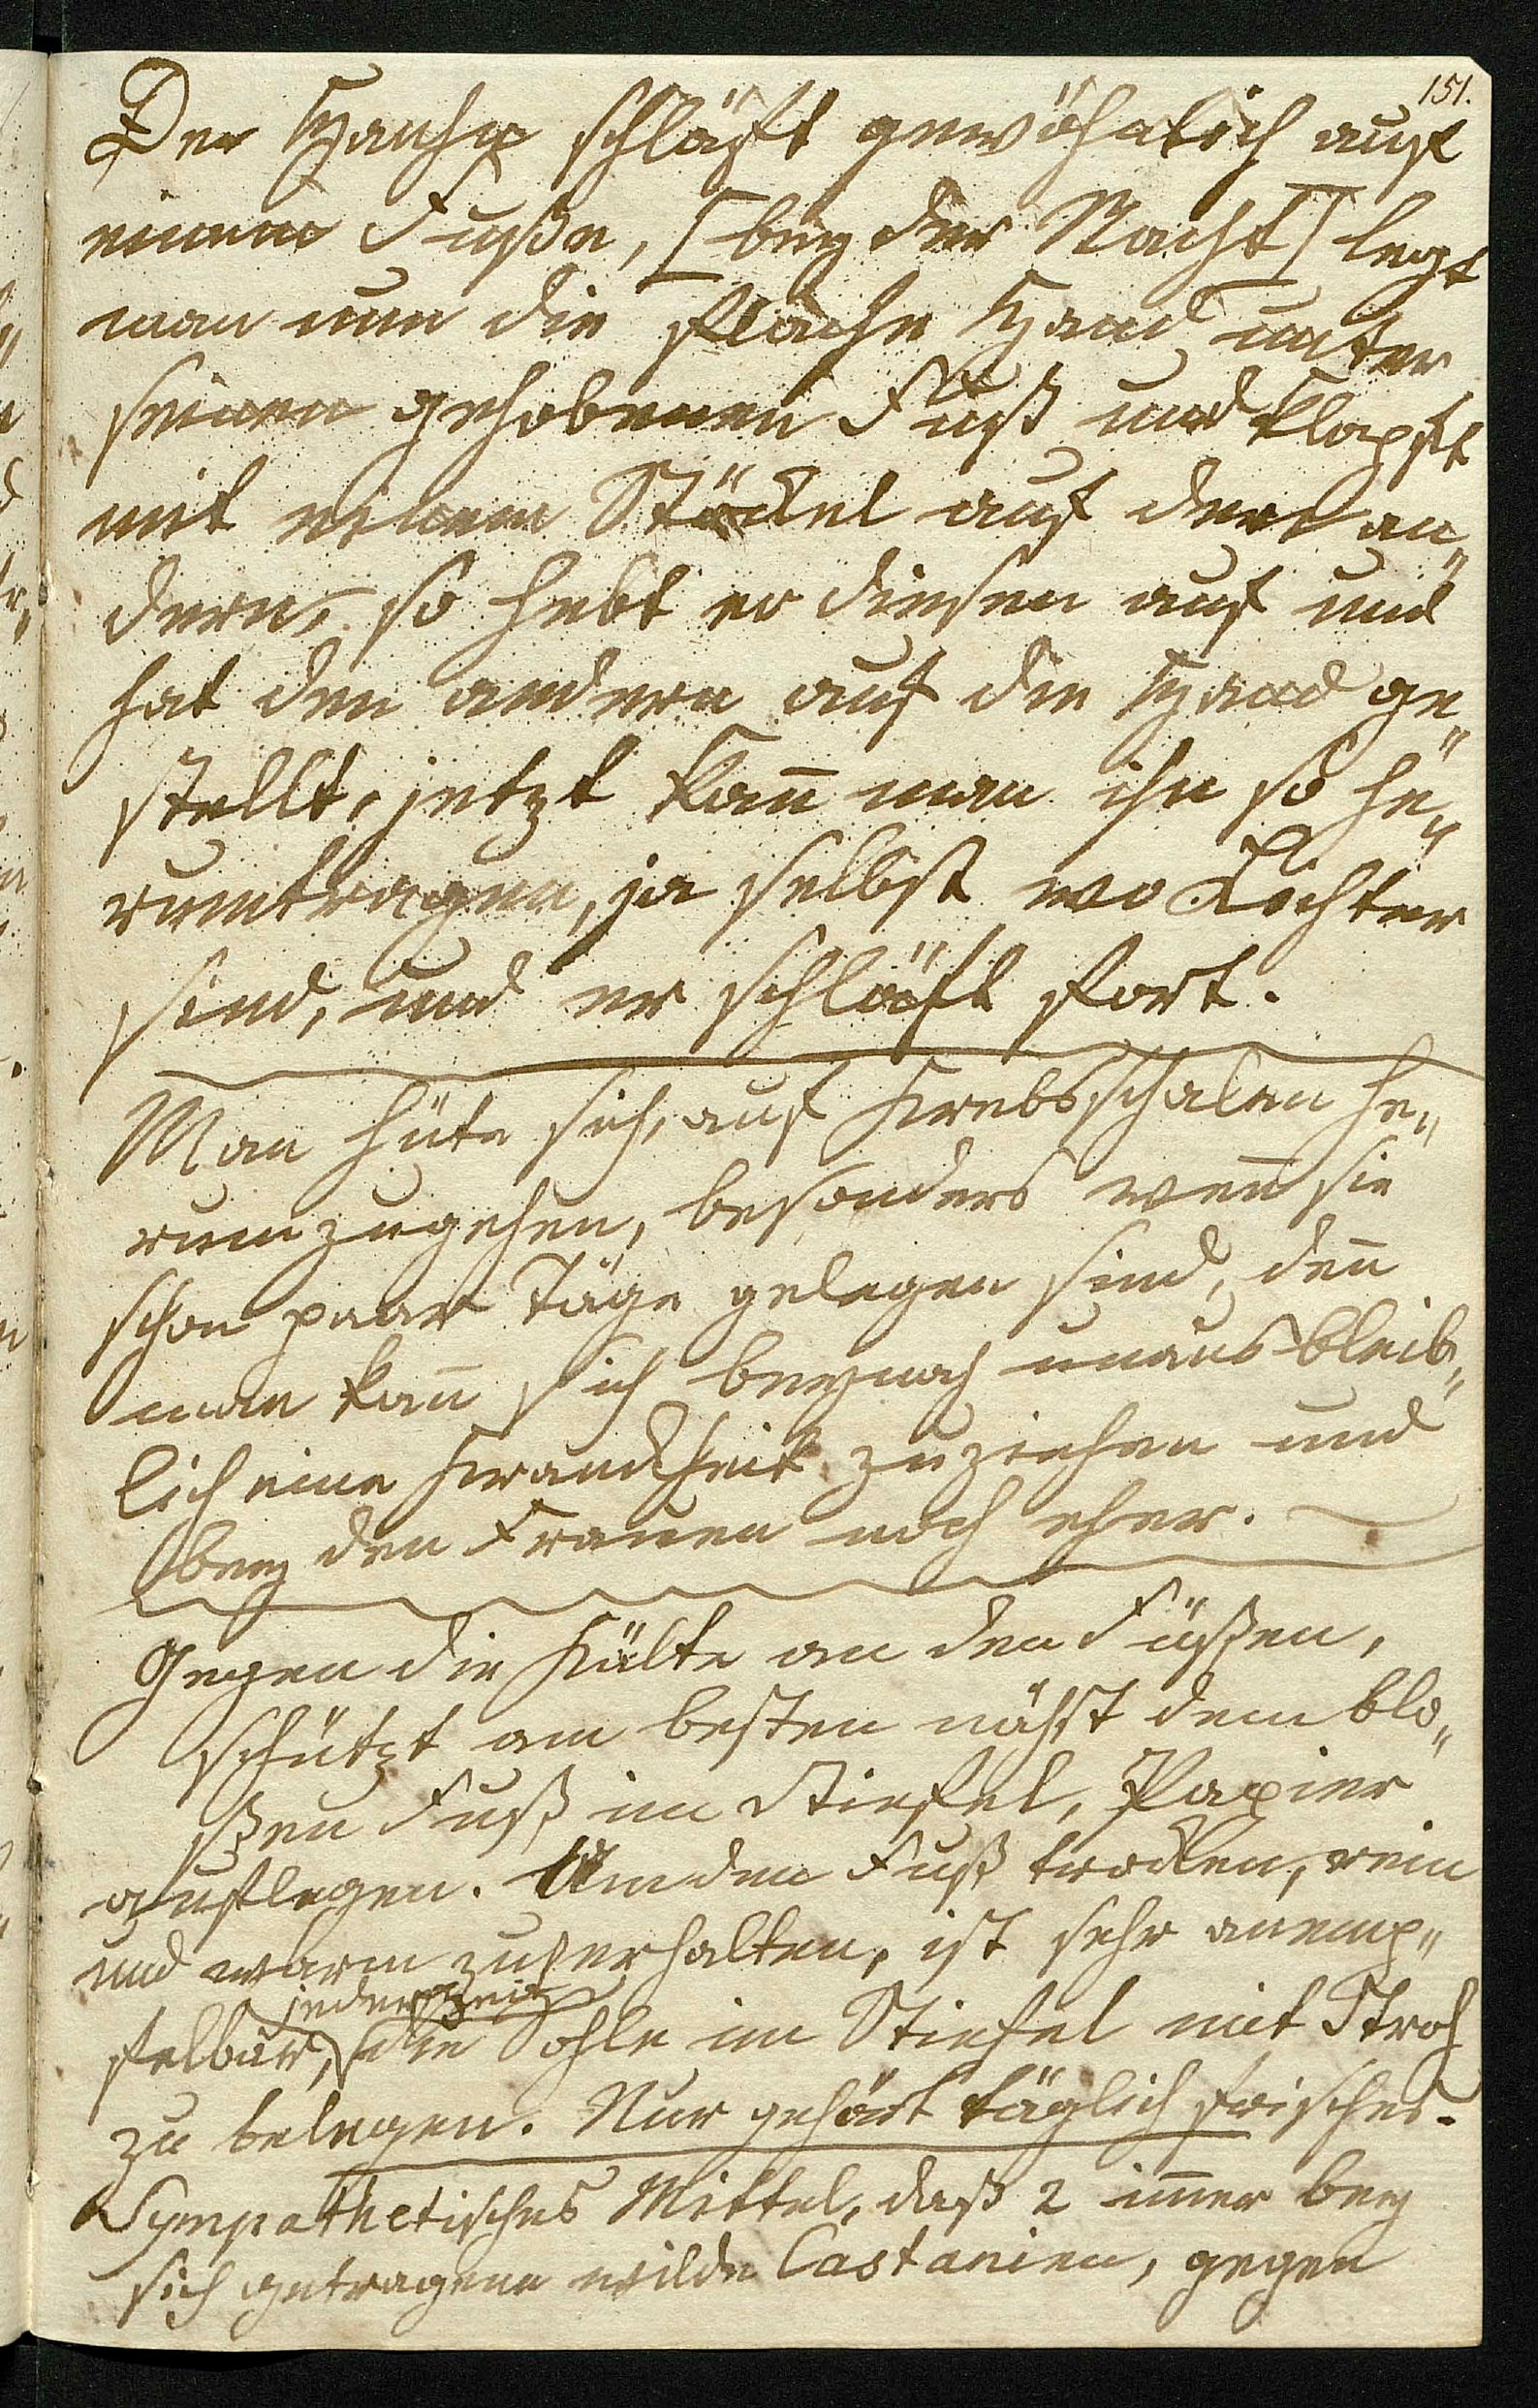 151.
Der schläft gewöhnlich auf
einem Fuße, [bey der Nacht] legt
man nun die flache Hand unter
seinen gehobenen Fuß und klopft
mit einem Stöckel auf den an„
dern, so hebt er diesen auf und
hat den andern auf die Hand ge„
stellt, jetzt kan̄ man ihn so he„
rumtragen, ja selbst wo Lichter
sind, und er schläft fort.
Man hüte sich, auf Krebsschalen he„
rumzugehen, besonders wen̄ sie
schon paar Täge gelegen sind, den̄
man kan̄ sich beynah unausbleib„
lich eine Krankheit zuziehen und
bey den Frauen noch eher.
Gegen die Kälte an den Füßen,
schützt am besten nächst dem blo„
ßen Fuß im Stiefel, Papier
auflegen. Um den Fuß trocken, rein
und warm zu erhalten, ist sehr anemp„
jederzeit
felbar, die Sohle im Stiefel mit Stroh
zu belegen. Nur gehört täglich frisches.
Sympathetisches Mittel, daß 2 im̄er bey
sich getragene wilde Castanien, gegen